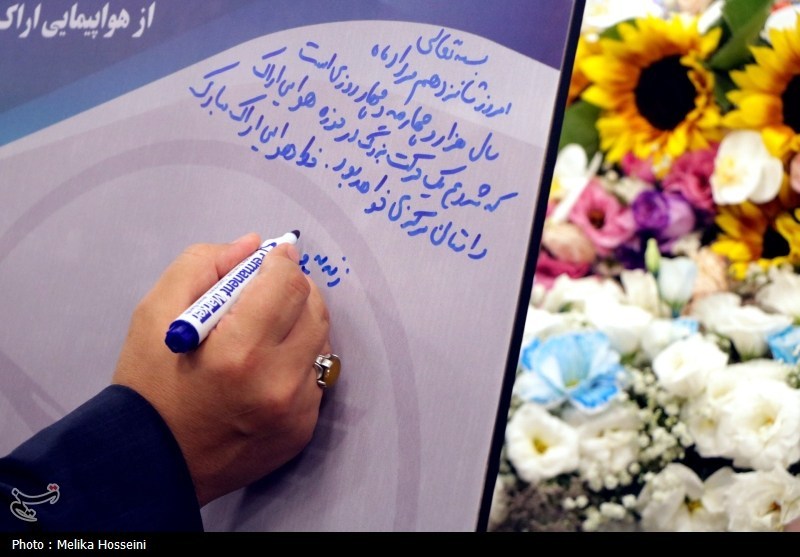 از هواپیمایی اراک
بسمه تعالی
امروز شانزدهم مرداد ماه
سال هزار و چهارصد و چهار روزی است
که شروع یک حرکت بزرگ در حوزه هوایی اراک
و استان مرکزی خواهد بود. خط هوایی اراک مبارک
زنده
تسنیم
Permanent Marker
Photo : Melika Hosseini